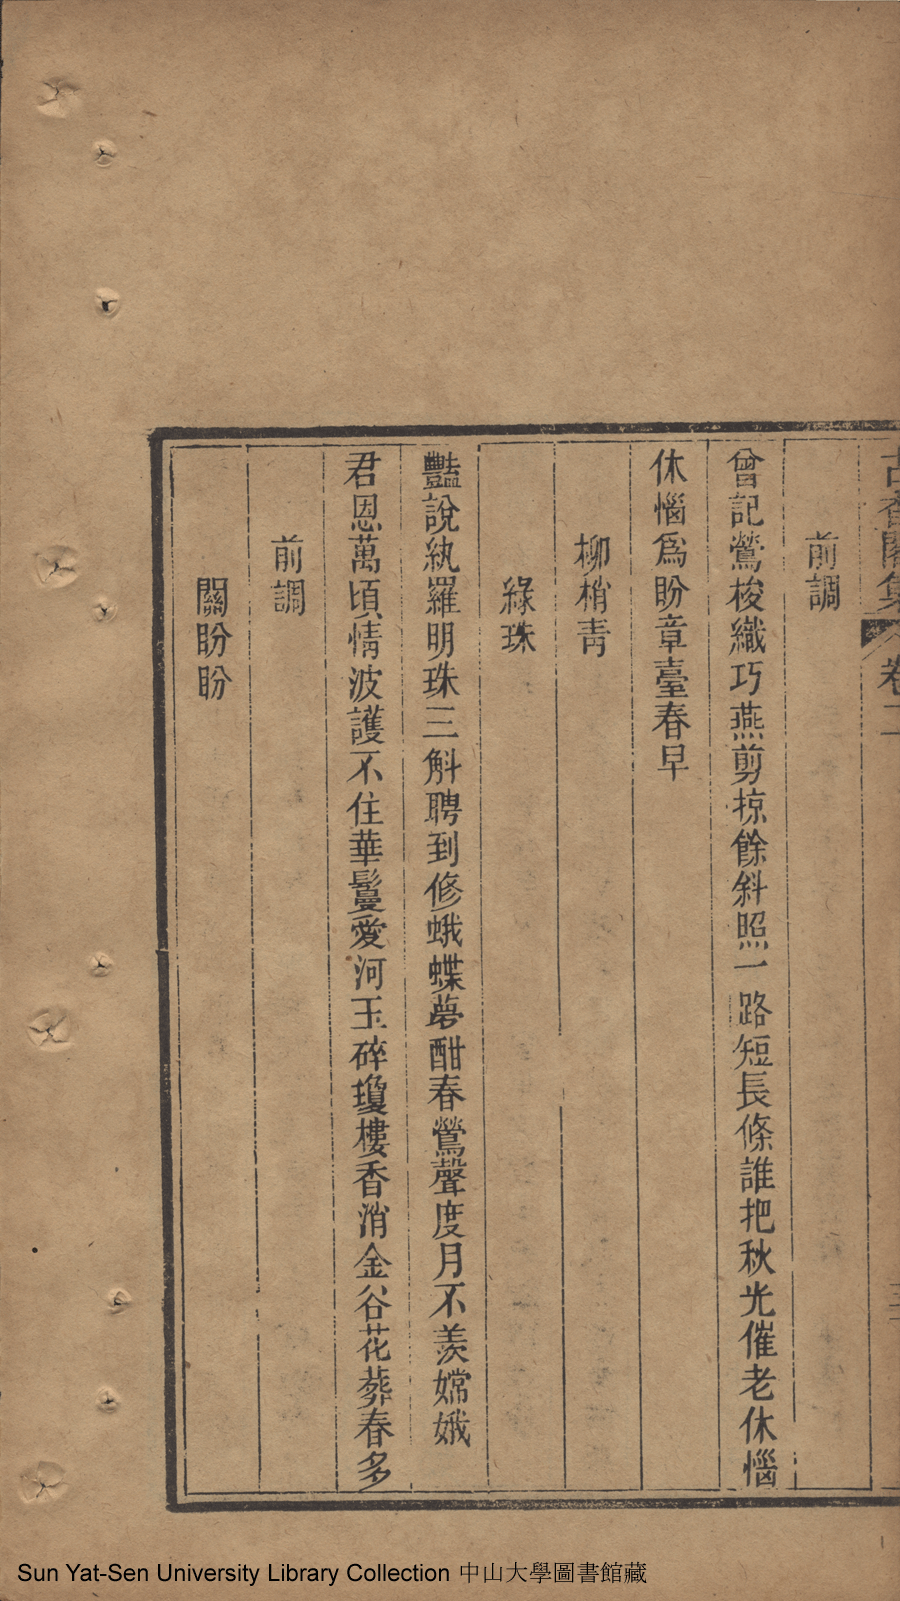 古香閣集 卷二
前調
曾記鶯梭織巧燕剪掠餘斜照一路短長條誰把秋光催老休惱
休惱爲盼章臺春早
柳梢青
綠珠
豔說紈羅明珠三斛聘到修蛾蝶夢酣春鶯聲度月不羨嫦娥
君恩萬頃情波護不住華鬘愛河玉碎瓊樓香消金谷花葬春多
前調
關盼盼
Sun Yat-Sen University Library Collection 中山大學圖書館藏